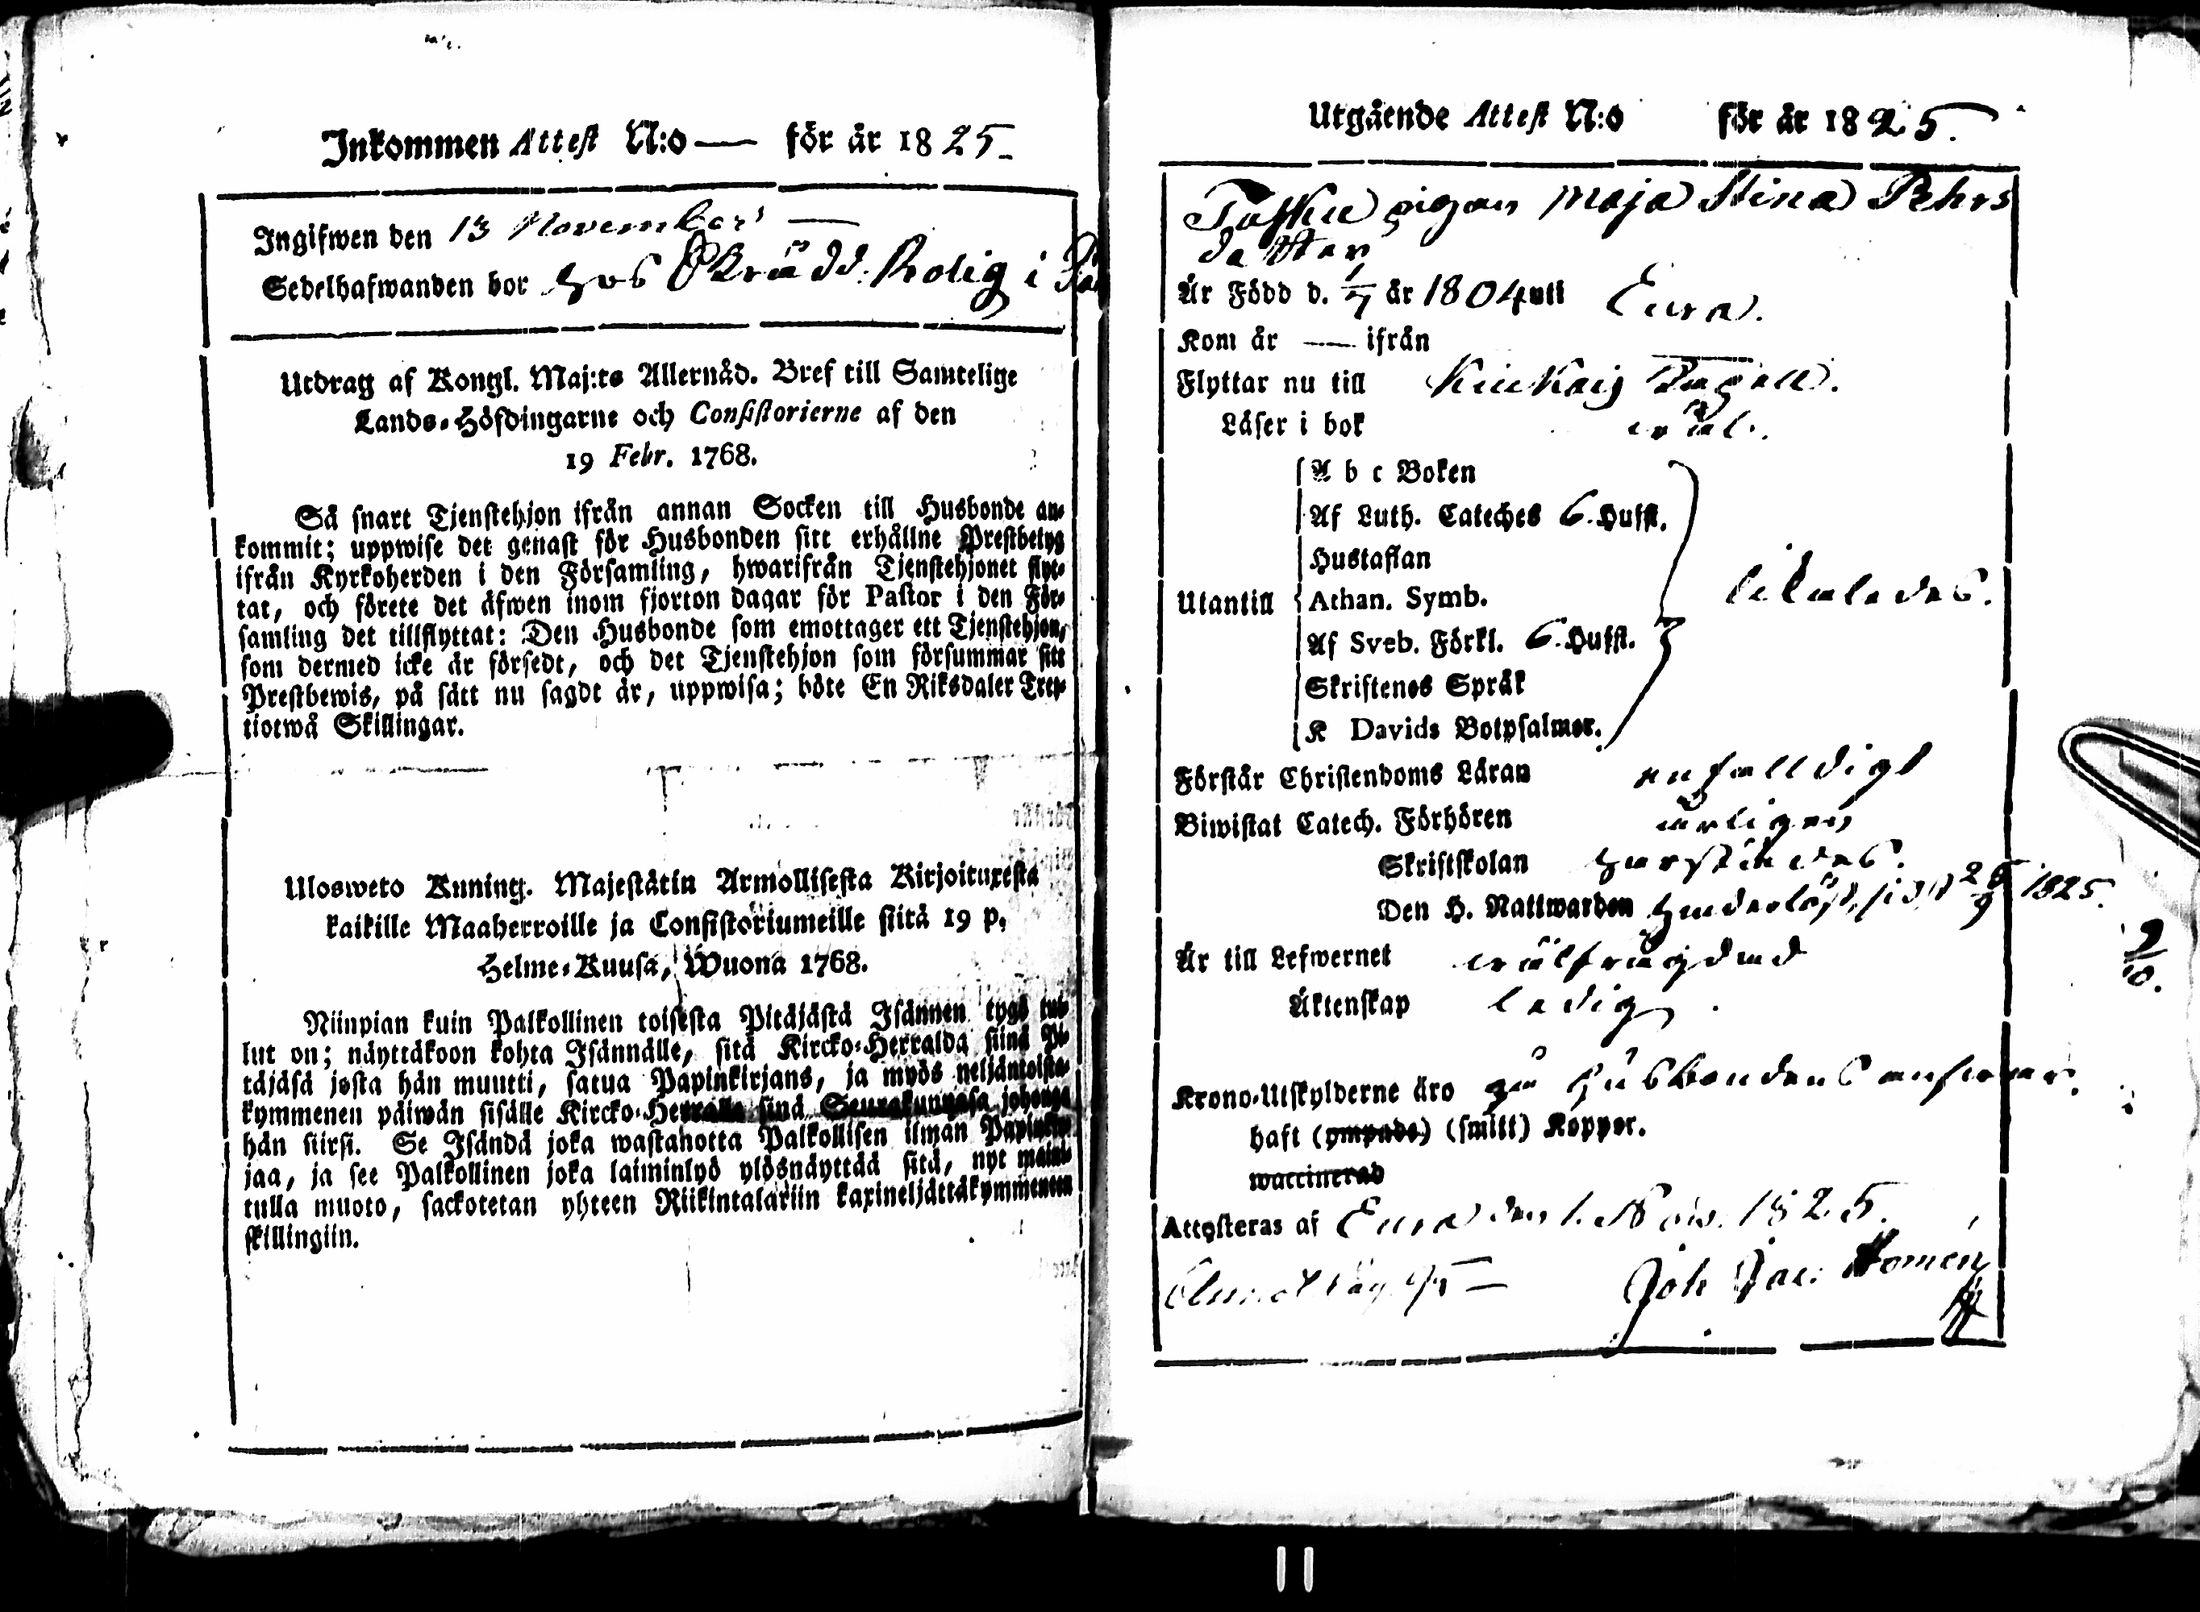 Inkommen Attest N:o — för år 1825.
Ingifwen den 13 November
Sedelhafwanden bor hos Skrädd. Rolig i
Utdrag af Kongl. Maj:ts Allernåd. Bref till Samtelige
Lands-Höfdingarne och Consistorierne af den
19 Febr. 1768.
Så snart Tjenstehjon ifrån annan Socken till Husbonde an-
kommit; uppwise det genast för Husbonden sitt erhållne Prestbetyg
ifrån Kyrkoherden i den Församling, hwarifrån Tjenstehjonet flyt-
tat, och förete det äfwen inom fjorton dagar för Pastor i den För-
samling det tillflyttat: Den Husbonde som emottager ett Tjenstehjon,
som dermed icke är försedt, och det Tjenstehjon som försummar sitt
Prestbewis, på sätt nu sagdt är, uppwisa; böte En Riksdaler Tret-
tiotwå Skillingar.
Ulosweto Kuning. Majestätin Armollisesta Kirjoituxesta
kaikille Maaherroille ja Consistoriumeille siitä 19 p.
Helme-Kuusa, Wuona 1768.
Niinpian kuin Palkollinen toisesta Pitäjästä Isännen tygö tul-
lut on; näyttäkoon kohta Isännälle, sitä Kircko-Herralda siinä Pi-
täjäsä josta hän muutti, saatua Papinkirjans, ja myös neljäntoista-
kymmenen päiwän sisälle Kircko-Herralle siinä Seurakunnasa johonga
hän siirsi. Se Isändä joka wastanotta Palkollisen ilman Papinkir-
jaa, ja see Palkollinen joka laiminlyö ylösnäyttää sitä, nyt maini-
tulla muoto, sackotetan yhteen Riikintalariin kaxineljättäkymmenten
skillingiin.
Utgående Attest N:o för år 1825.
pigan Maja Stina Pehrs
dotter
Är Född d. 1/7 år 1804 uti Eura.
Kom år — ifrån —
Flyttar nu till
Läser i bok wäl.
A b c Boken
Af Luth. Cateches 6. Hufst.
Hustaflan
Utantill Athan. Symb. likaledes.
Af Sveb. Förkl. 6. Hufst.
Skriftenes Språk
K Davids Botpsalmer.
Förstår Christendoms Läran enfalldigt
Biwistat Catech. Förhören årligen
Skriftskolan
Den H. Nattwarden 1825.
Är till Lefwernet wälfrägdad
Äktenskap ledig.
Krono-Utskylderne äro på Husbondens answar.
haft (ympade) (smitt) Koppor.
waccinerad
Attesteras af Eura den 1. Nov. 1825.
Joh Jac: Homén